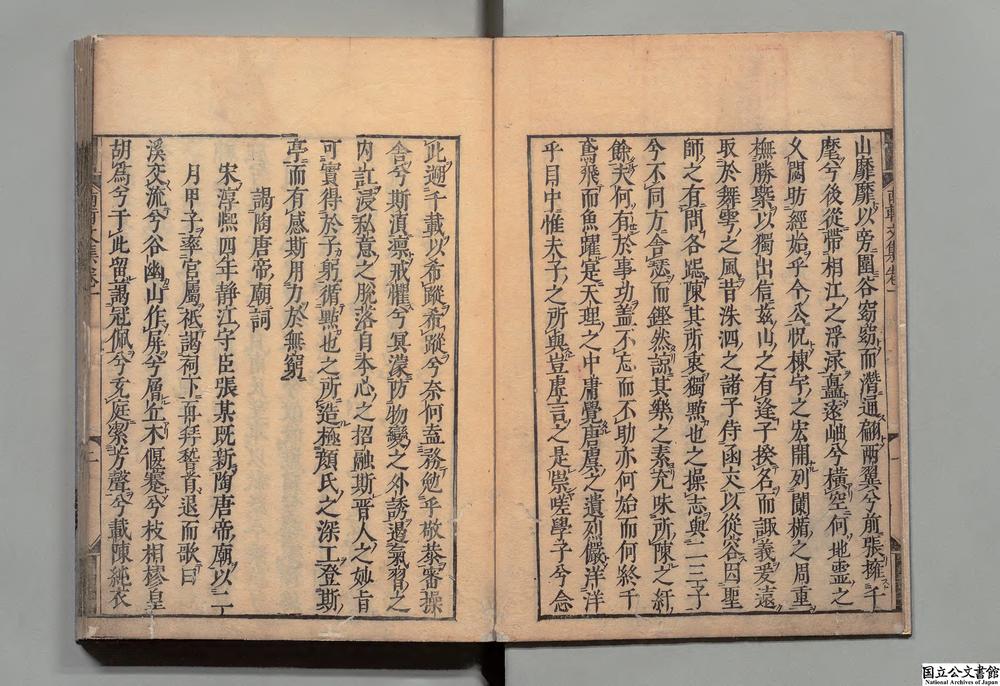 山靡靡以旁圍谷窈窈而潛通翩兩翼兮前張擁千
麾兮後從帶相江之浮淥矗遂岫兮橫空何地靈之
久閟昉經始乎今公怳棟宇之宏開列闌楯之周重
撫勝槩以獨出信茲山之有逢予揆名而諏義爰遠
取於舞雩之風昔洙泗之諸子侍函丈以從容因聖
師之有問各跽陳其所衷獨點也之操志與二三子
兮不同方舍瑟而鏗然諒其樂之素充味所陳之紆
餘夫何有於事功蓋不忘而不助亦何始而何終于
鳶飛而魚躍寔天理之中庸覺唐虞之遺烈儼洋洋
乎目中惟夫子之所與豈虛言之是崇嗟學子兮念
此遡千載以希蹤希蹤兮奈何盍務勉乎敬恭審操
舍兮斯須凜戒懼兮冥濛防物變之外誘遏氣習之
内訌浸私意之脫落自本心之昭融斯昔人之妙旨
可實得於予躬循點也之所造極顏氏之深工登斯
亭而有感斯用力於無窮
謁陶唐帝廟詞
宋淳熙四年靜江守臣張某既新陶唐帝廟以二
月甲子率官屬祗謁祠下再拜稽首退而歌曰
溪交流兮谷幽山作屏兮層丘木偃蹇兮枝相樛皇
胡爲兮于此留謁冠佩兮充庭潔芳聲兮載陳純衣
南軒文集卷一
一
二
国立公文書館
National Archives of Japan